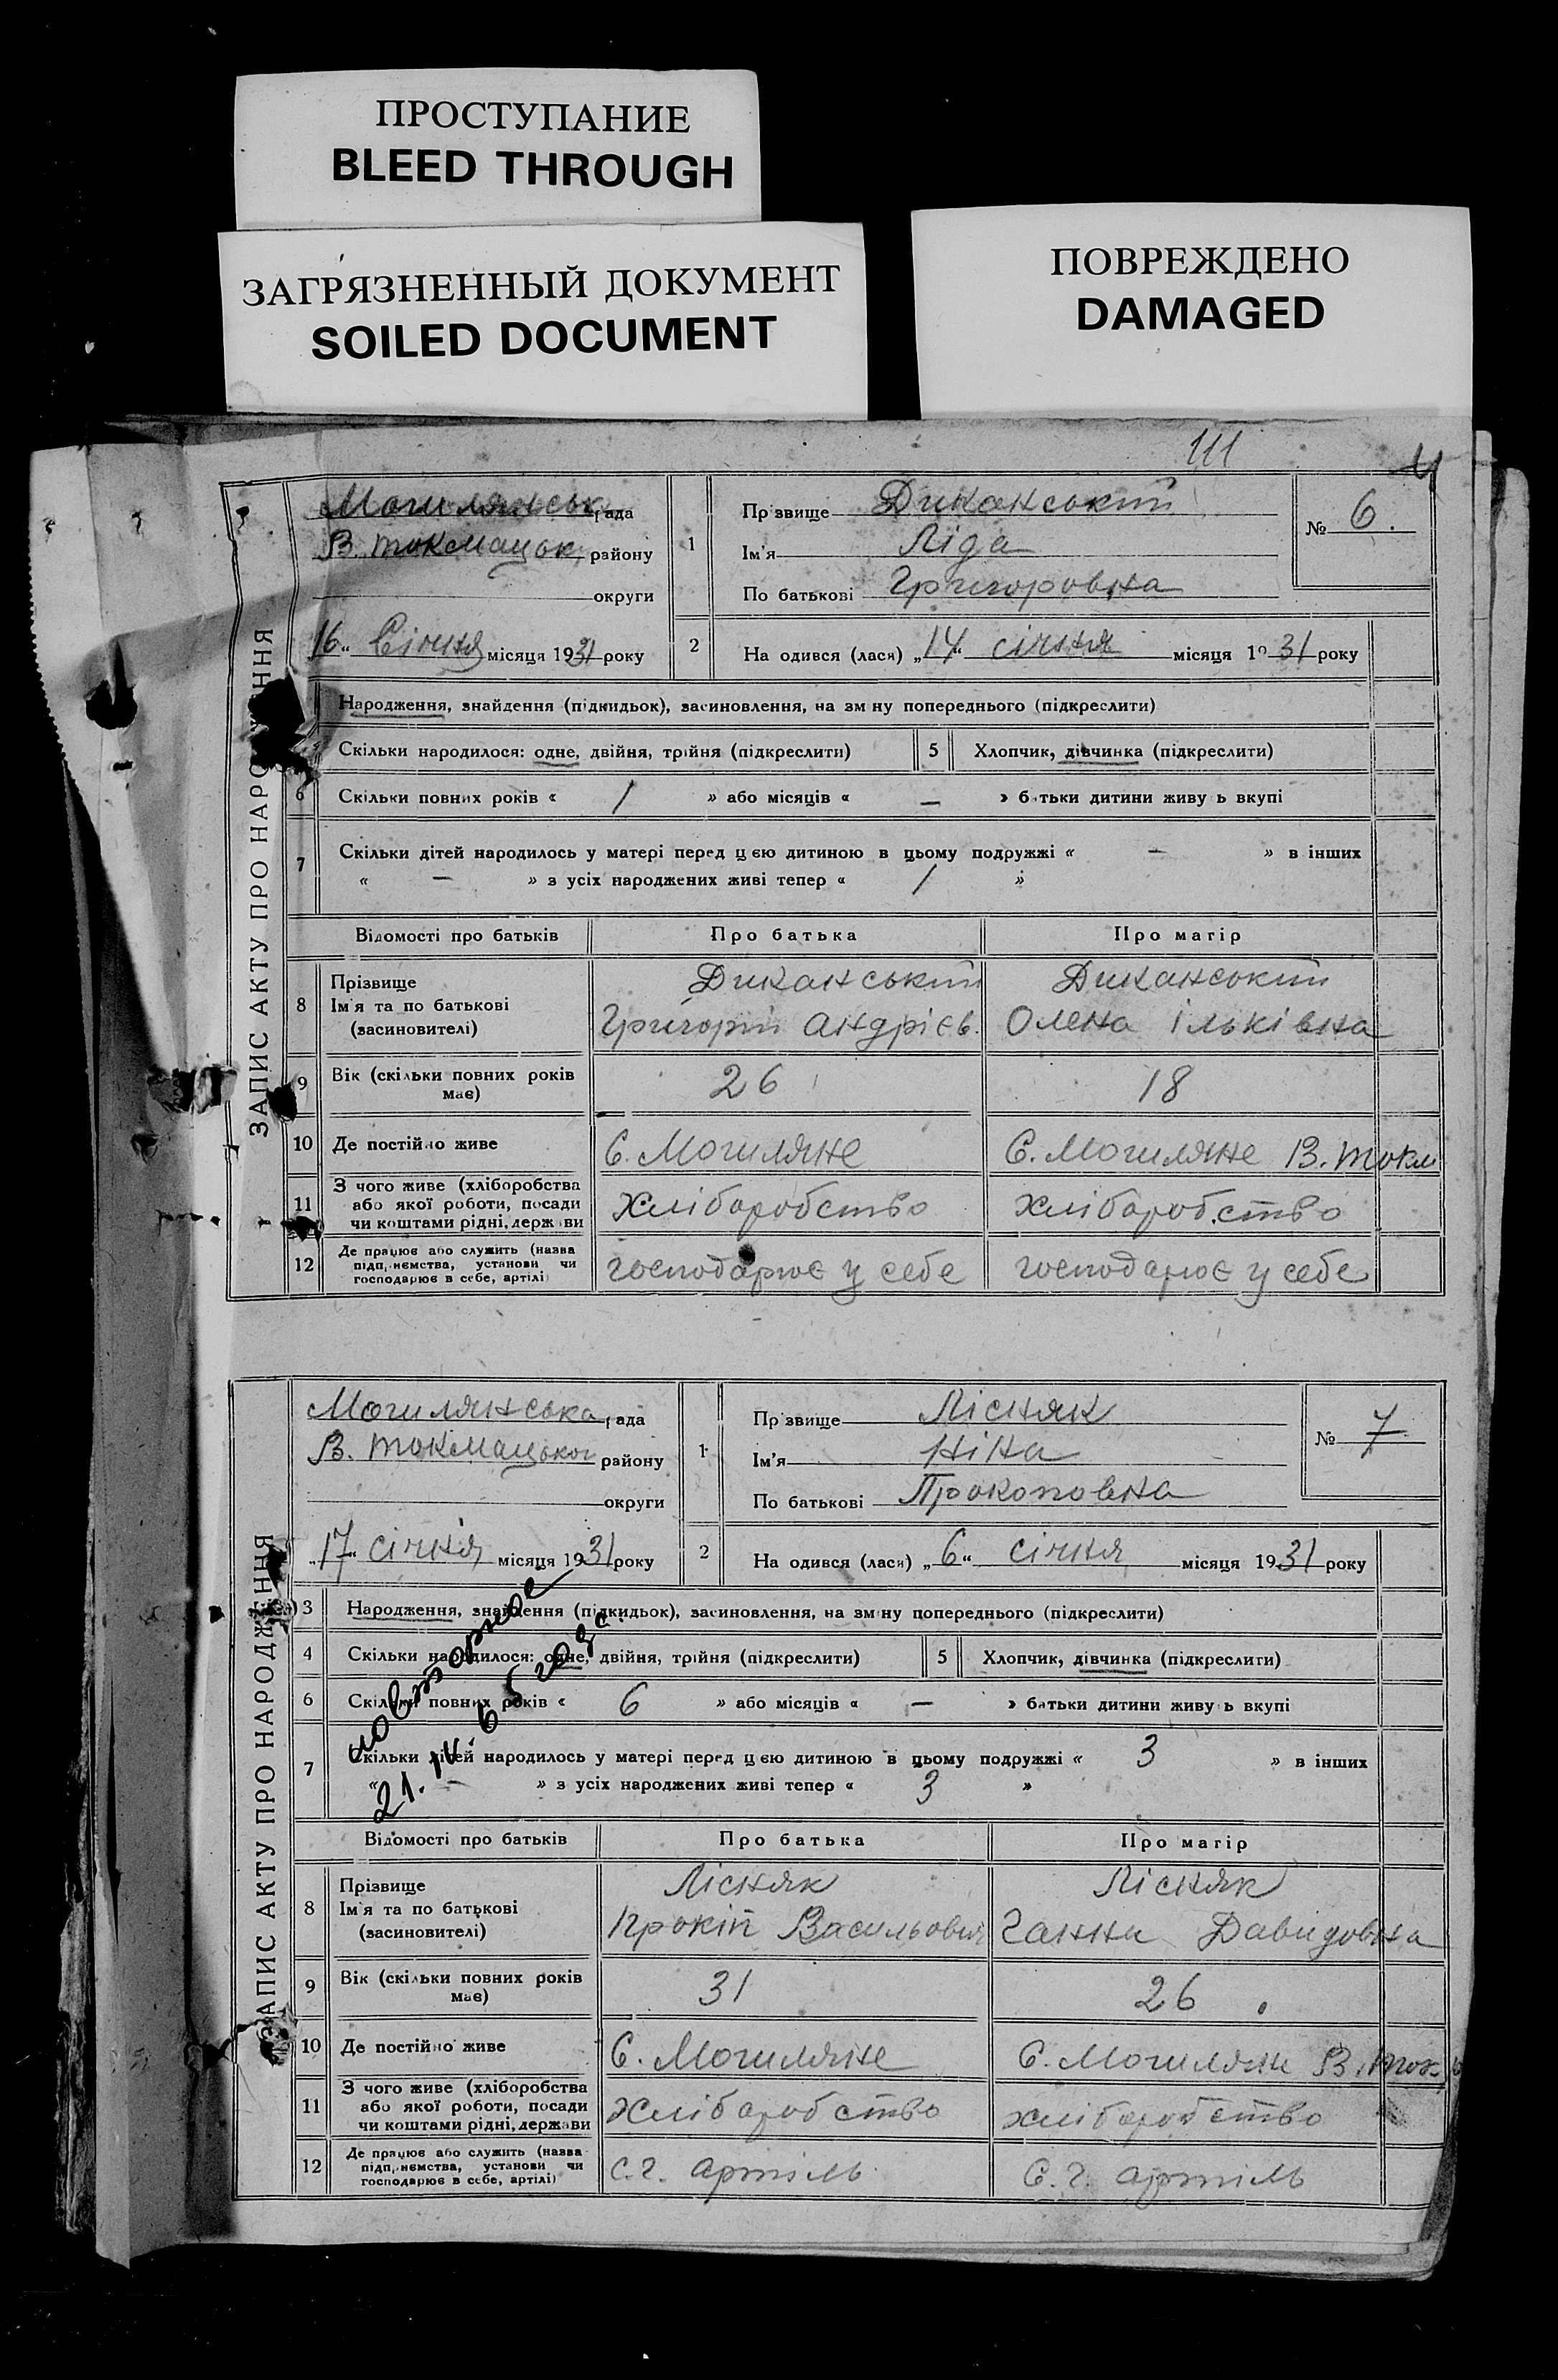 ПРОСТУПАНИЕ
BLEED THROUGH
ЗАГРЯЗНЕННЫЙ ДОКУМЕНТ
SOILED DOCUMENT
ПОВРЕЖДЕНО
DAMAGED
111
ЗАПИС АКТУ ПРО НАРОДЖЕННЯ
Могилянськ рада
В. Токмацьк. району
округи
16 " Січня місяця 1931 року
1
Пр звище Диканський
Ім'я Ліда
По батькові Григоровна
№ 6.
2
На одився (лася) „14" січня місяця 19 31 року
Народження, знайдення (підкидьок), засиновлення, на зм ну попереднього (підкреслити)
4 Скільки народилося: одне, двійня, трійня (підкреслити)
5 Хлопчик, дівчинка (підкреслити)
6 Скільки повних років « 1 » або місяців « — » батьки дитини живу ь вкупі
7 Скільки дітей народилось у матері перед цією дитиною в цьому подружжі « — » в інших
« — » з усіх народжених живі тепер « 1 »
Відомості про батьків Про батька Про матір
8 Прізвище
Ім'я та по батькові
(засиновителі)
Диканський
Григорій Андрієв.
Диканський
Олена Ільківна
9 Вік (скільки повних років
має)
26
18
10 Де постійно живе
С. Могиляне
С. Могиляне В. Токм
11 З чого живе (хліборобства
або якої роботи, посади
чи коштами рідні, держави
Хліборобство
Хліборобство
12 Де працює або служить (назва
підприємства, установи чи
господарює в себе, артілі)
господарює у себе
господарює у себе
ЗАПИС АКТУ ПРО НАРОДЖЕННЯ
Могилянська рада
В. Токмацького району
округи
„17" січня місяця 1931 року
1
Пр звище Лісняк
Ім'я Ніна
По батькові Прокоповна
№ 7
2
На одився (лася) „6" січня місяця 1931 року
3 Народження, знайдення (підкидьок), засиновлення, на зм ну попереднього (підкреслити)
4 Скільки народилося: одне, двійня, трійня (підкреслити)
5 Хлопчик, дівчинка (підкреслити)
6 Скільки повних років « 6 » або місяців « — » батьки дитини живу ь вкупі
7 Скільки дітей народилось у матері перед цією дитиною в цьому подружжі « 3 » в інших
« — » з усіх народжених живі тепер « 3 »
повторное
21. IV. 65
Відомості про батьків Про батька Про матір
8 Прізвище
Ім'я та по батькові
(засиновителі)
Лісняк
Прокіп Васильович
Лісняк
Ганна Давидовна
9 Вік (скільки повних років
має)
31
26
10 Де постійно живе
С. Могиляне
С. Могиляне В. Ток
11 З чого живе (хліборобства
або якої роботи, посади
чи коштами рідні, держави
Хліборобство
хліборобство
12 Де працює або служить (назва
підприємства, установи чи
господарює в себе, артілі)
С.г. артіль
С.г. артіль